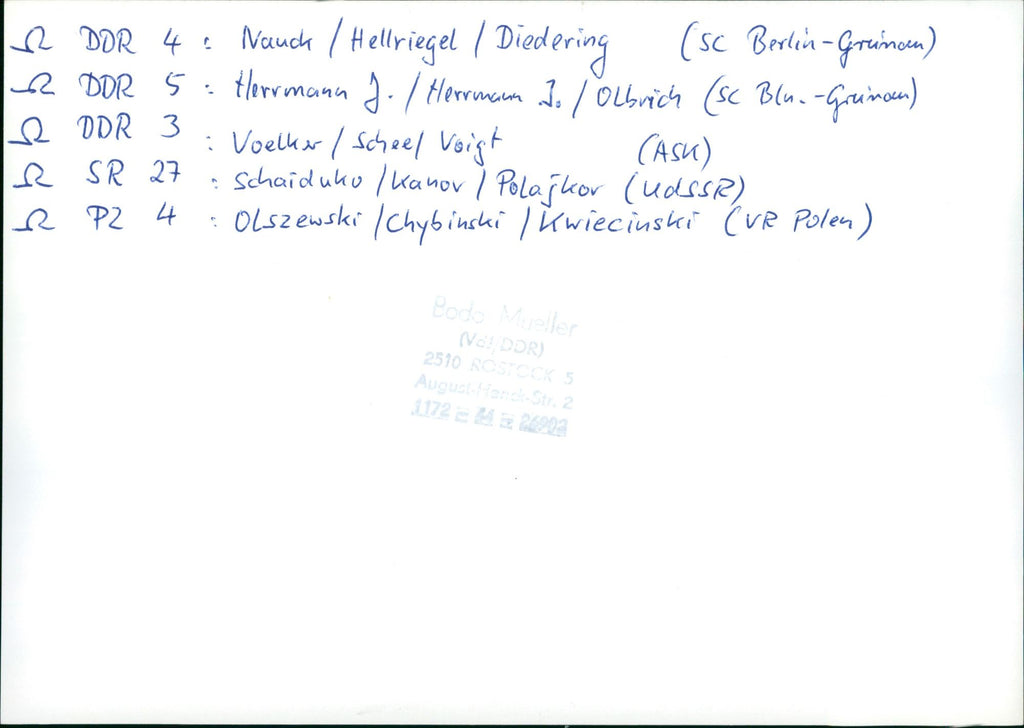 Ω DDR 4 : Nauck / Hellriegel / Diedering (SC Berlin-Grünau)
Ω DDR 5 : Herrmann J. / Herrmann J. / Olbrich (SC Bln.-Grünau)
Ω DDR 3 : Voelker / Scheel Voigt (ASK)
Ω SR 27 : Schaiduko / Kanov / Polajkov (UdSSR)
Ω PZ 4 : Olszewski / Chybinski / Kwiecinski (VR Polen)
Bodo Mueller
DDR)
2510 ROSTOCK 5
Str. 2
1172